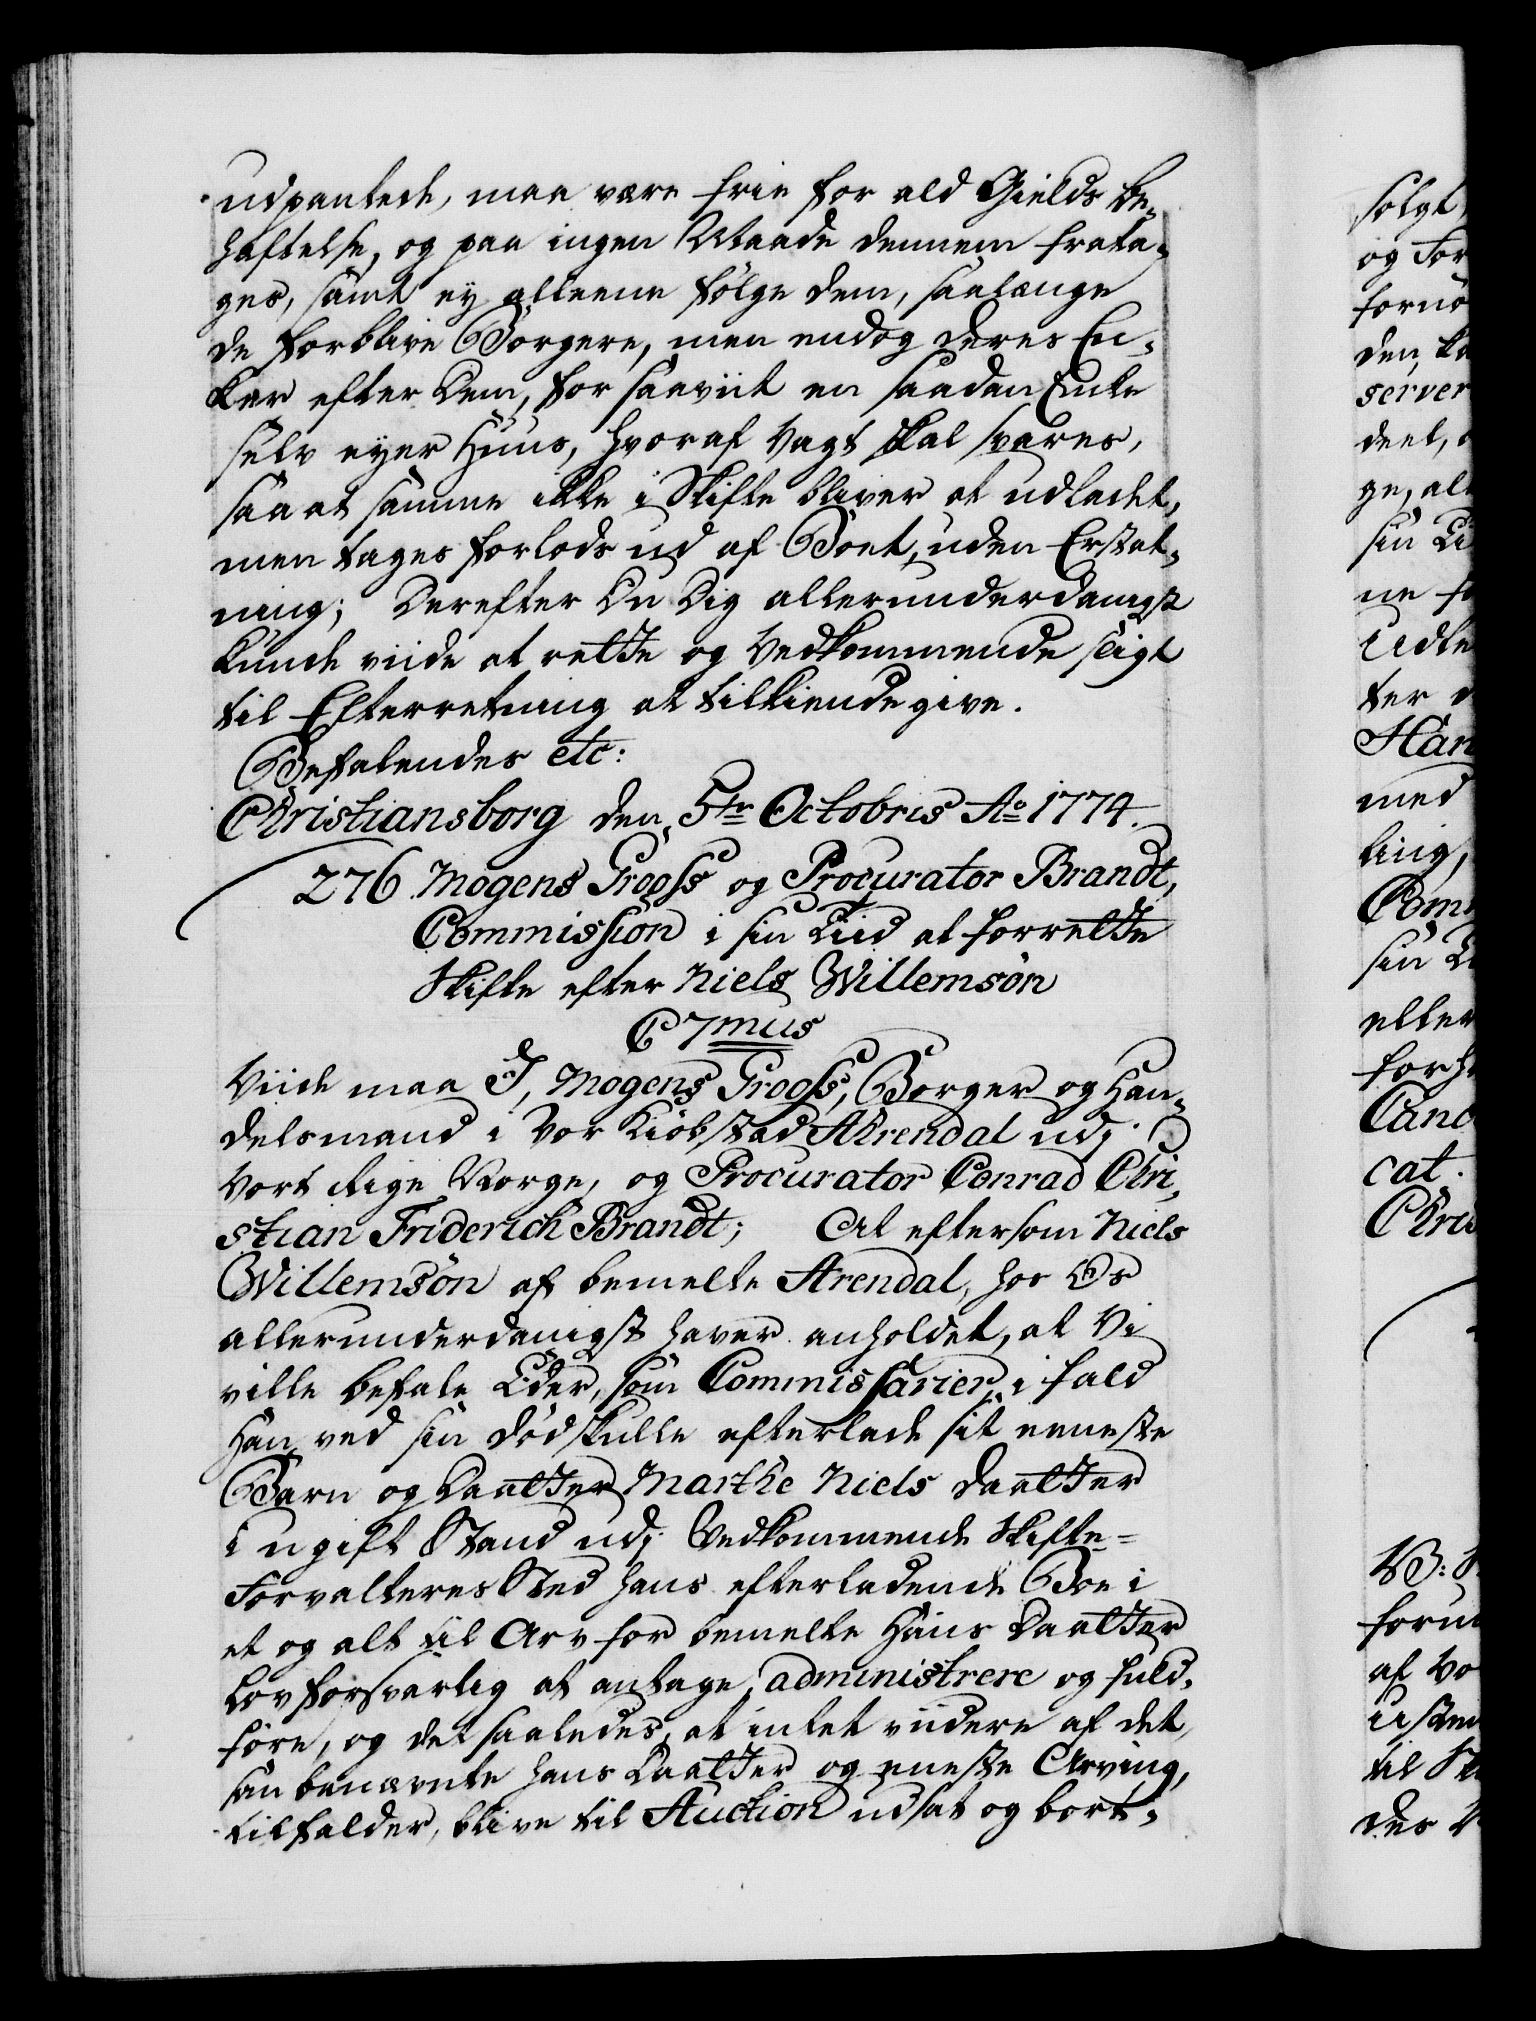 udpantede, maa være frie for ald Gields be-
hæftelse, og paa ingen Maade dennem frata-
ges, samt ey alleene følge dem, saalænge
de forblive Borgere, men endog deres En-
ker efter Dem, for saaviit en saadan Enke
selv eyer Huus, hvoraf Vagt skal svares,
saa at samme ikke i Skifte bliver at udlodet,
men tages forlods ud af Boet, uden Erstat-
ning; Derefter Du Dig allerunderdanigst
kunde viide at rette og Vedkommende sligt
til Efterretning at tilkiendegive.
Befalendes etc:
Christiansborg den 5te Octobris Ao 1774.
276. Mogens Grooss og Procurator Brandt,
Commission i sin Tiid at forrette
Skifte efter Niels Willemsøn
C 7mus
Viide maa I, Mogens Grooss, Borger og Han-
delsmand i Vor Kiøbstad Ahrendal udj
Vort Rige Norge, og Procurator Conrad Chri-
stian Friderich Brandt; At eftersom Niels
Willemsøn af bemelte Arendal, hos Os
allerunderdanigst haver anholdet, at Vi
ville befale Eder, som Commissarier, i fald
Han ved sin død skulle efterlade sit eeneste
Barn og Daatter Marthe Niels Daatter
i ugift Stand udj Vedkommende Skifte-
Forvalteres Sted hans efterladende Boe i
et og alt til Arv for bemelte Hans Daatter
lovforsvarlig at antage, administrere og fuld-
føre, og det saaledes, at intet viidere af det,
som benævnte hans Daatter og eneste Arving,
tilfalder, blive til Auction udsat og bort-